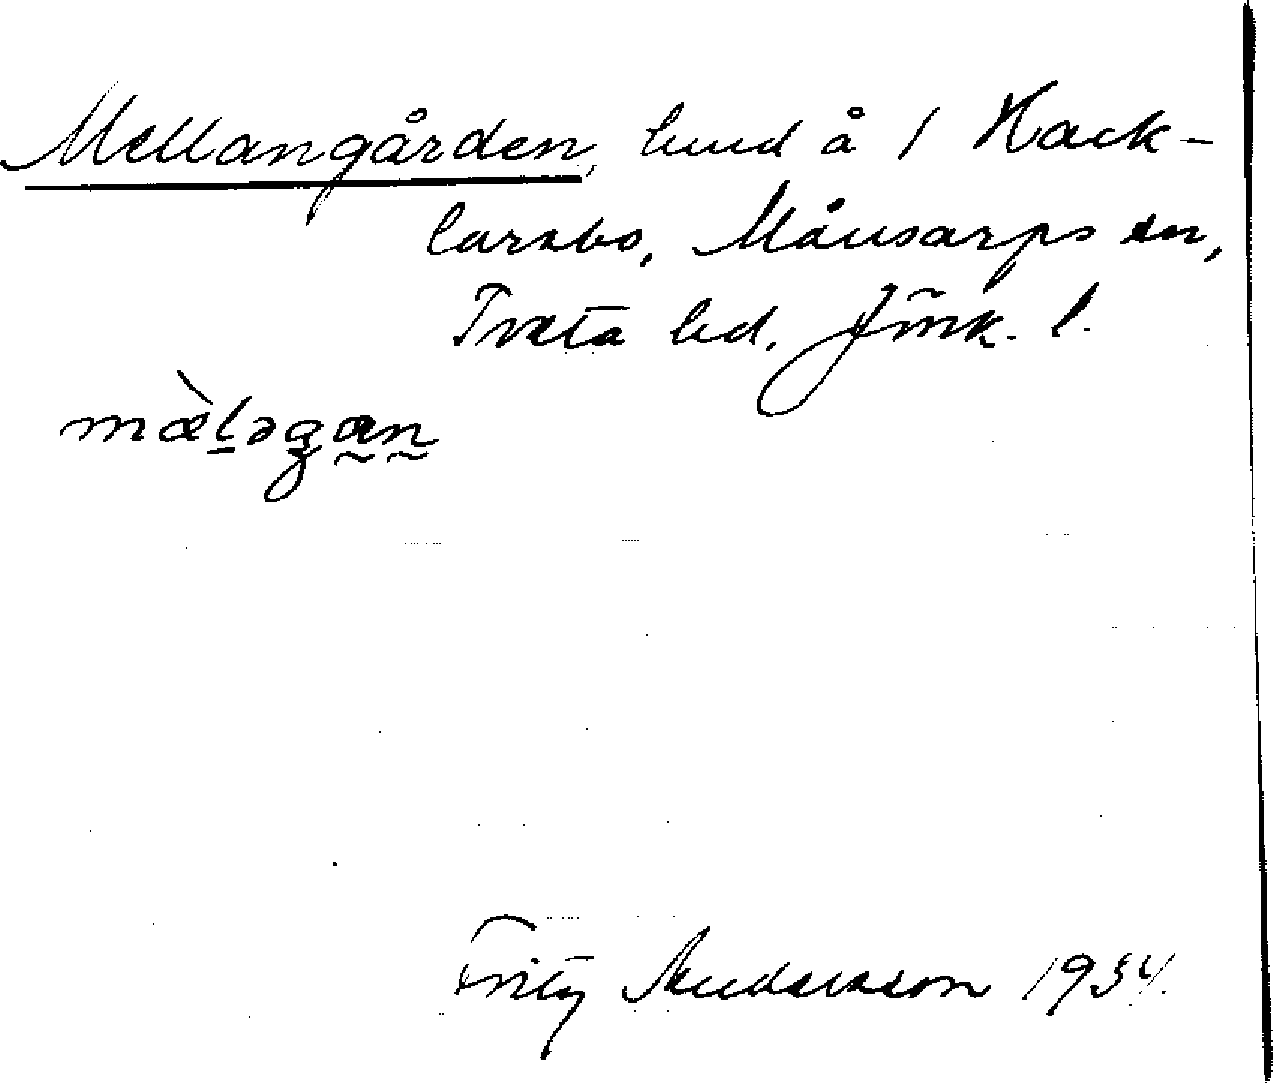 Mellangården, hmd å 1 Hack-
larabo, Månsarps sn,
Tveta hd. Jönk. l.
mæ̀ləgan
Fritz Andersson 1934.